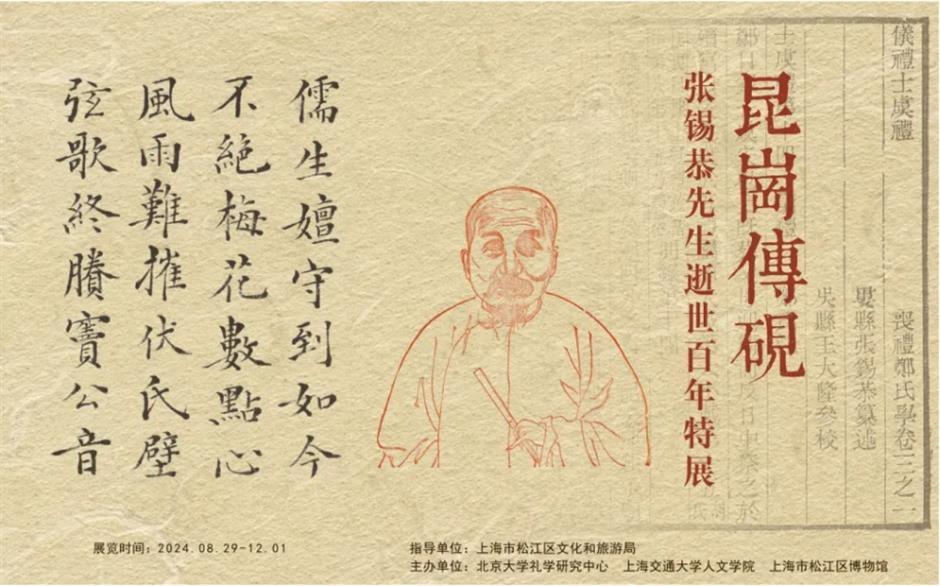 儀禮士虞禮
喪禮鄭氏學卷
婁縣張錫恭纂述
吳縣王大隆參校
昆崗傳硯
张锡恭先生逝世百年特展
儒生嬗守到如今
不絕梅花數點心
風雨難摧伏氏壁
弦歌終賸竇公音
展览时间：2024.08.29-12.01
指导单位：上海市松江区文化和旅游局
主办单位：北京大学礼学研究中心 上海交通大学人文学院 上海市松江区博物馆